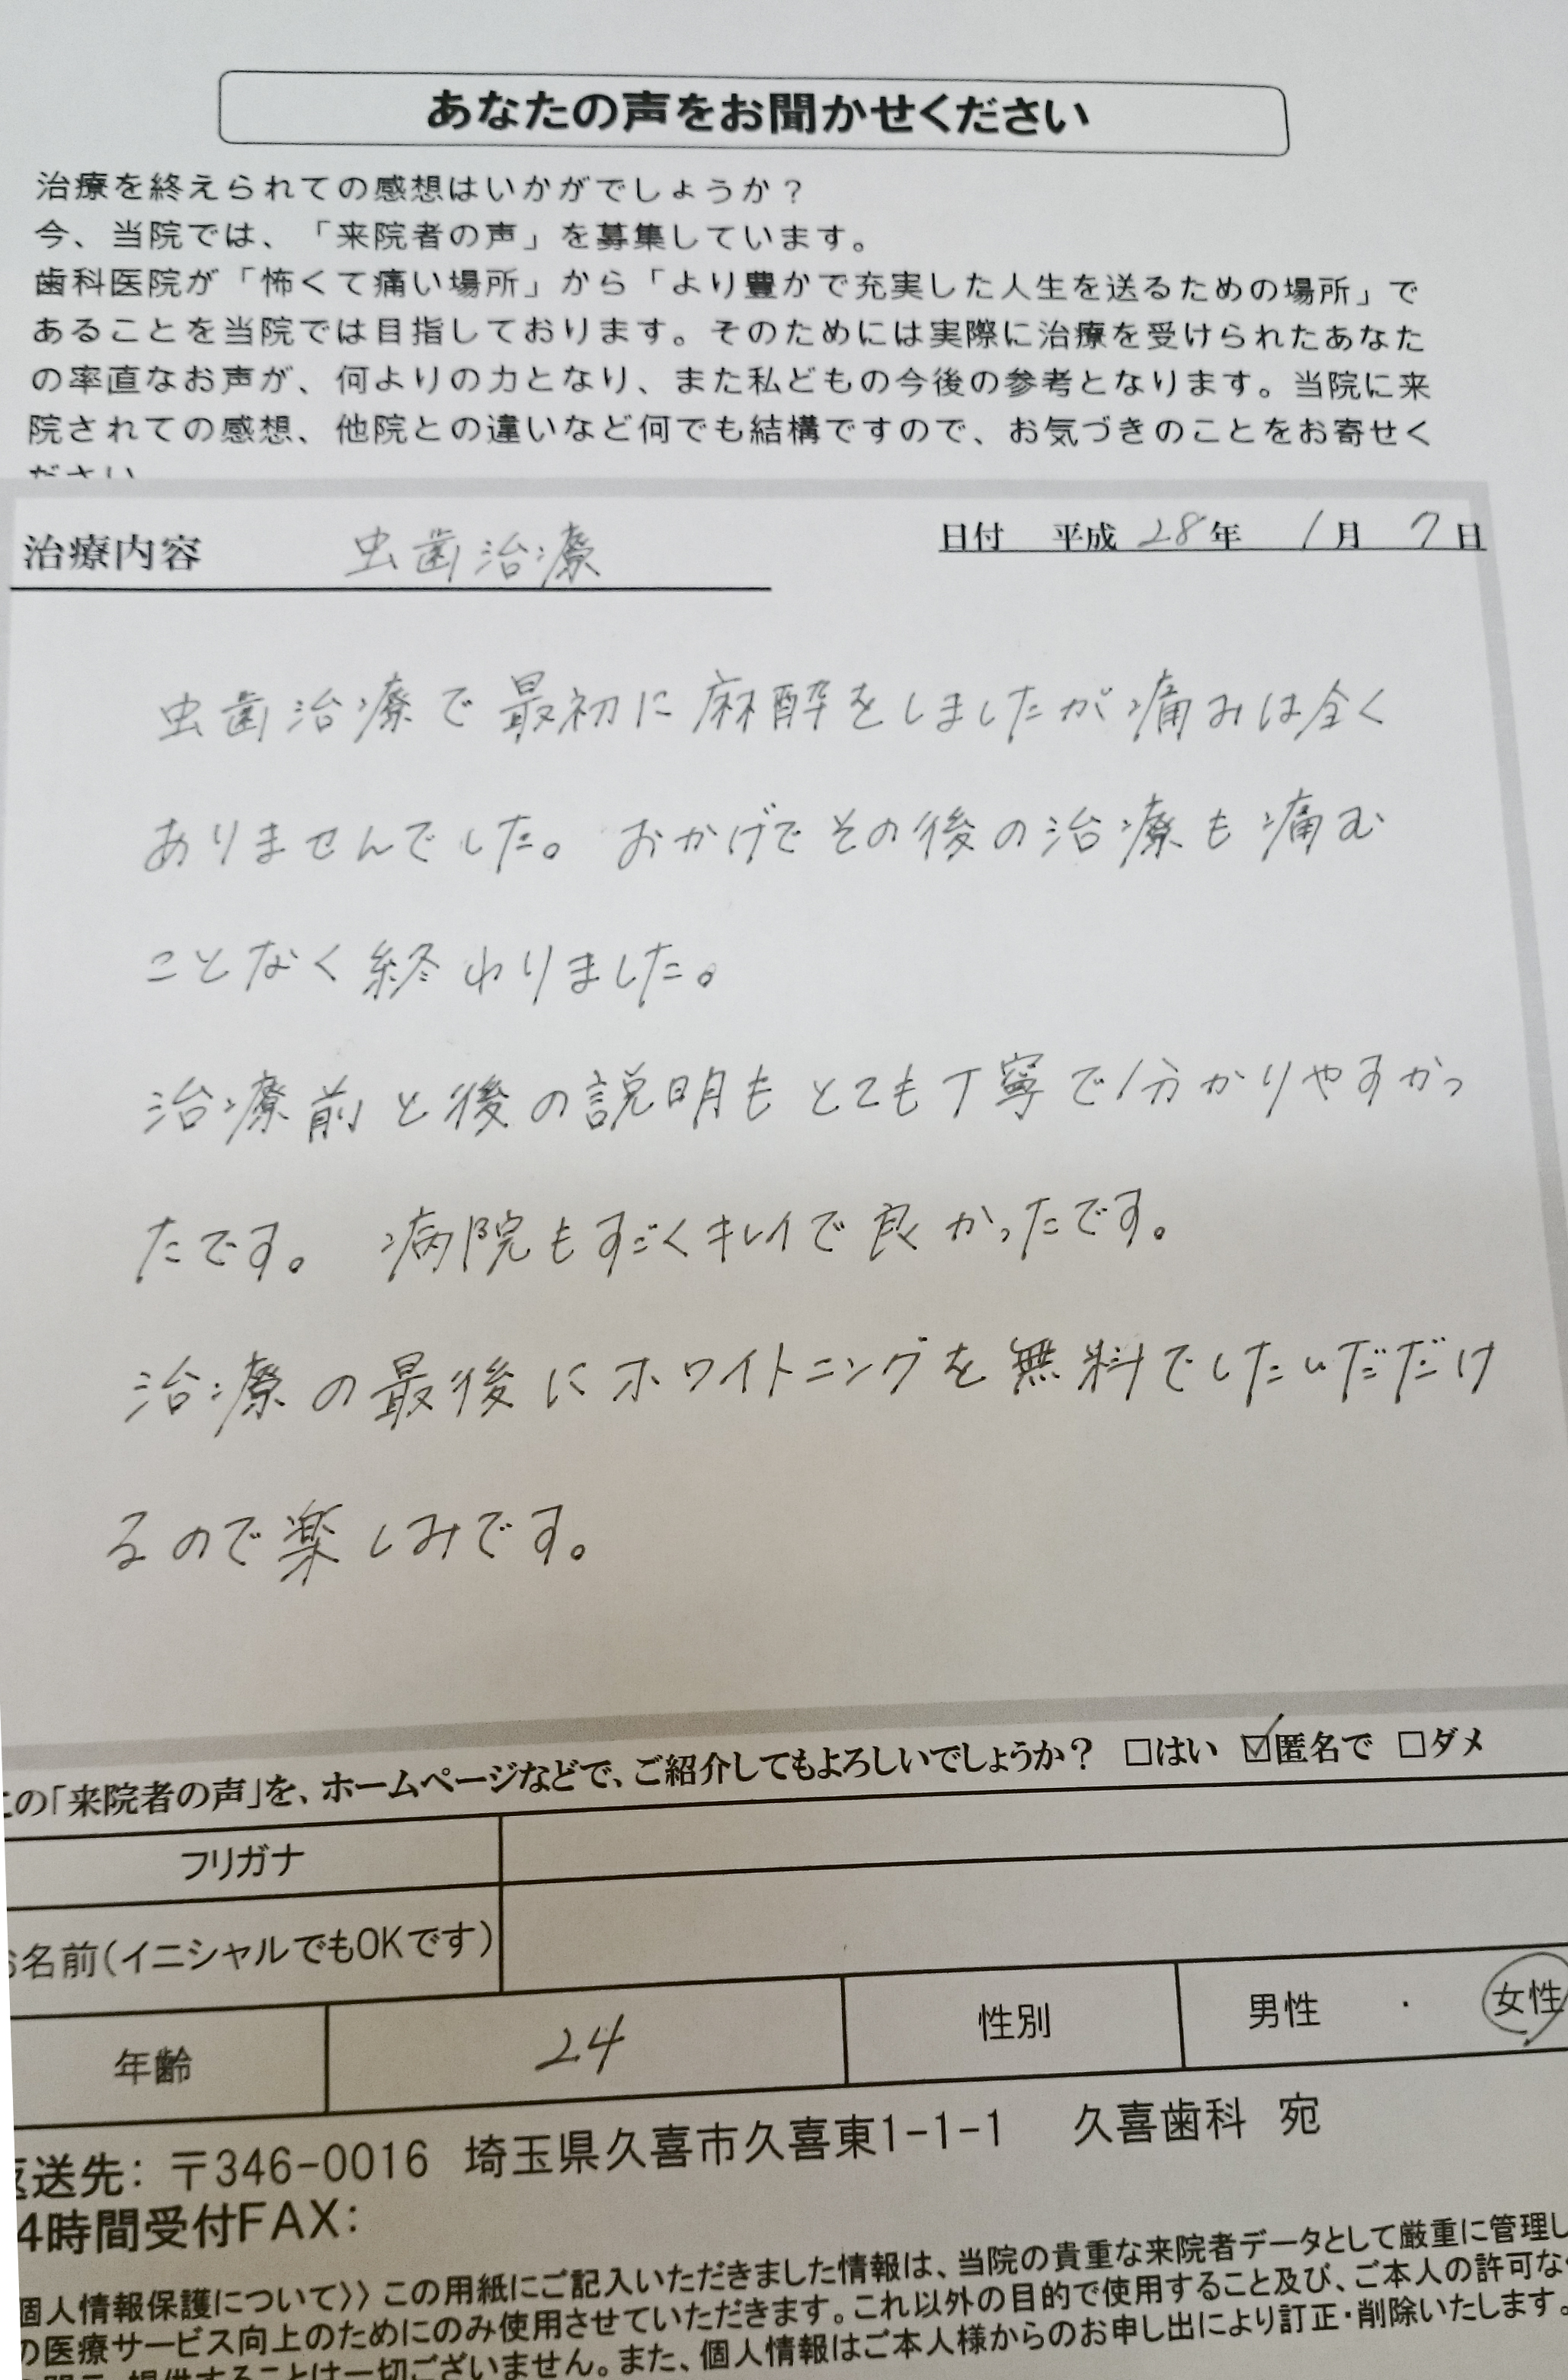 あなたの声をお聞かせください
治療を終えられての感想はいかがでしょうか？
今、当院では、「来院者の声」を募集しています。
歯科医院が「怖くて痛い場所」から「より豊かで充実した人生を送るための場所」で
あることを当院では目指しております。そのためには実際に治療を受けられたあなた
の率直なお声が、何よりの力となり、また私どもの今後の参考となります。当院に来
院されての感想、他院との違いなど何でも結構ですので、お気づきのことをお寄せく
ださい
治療内容 虫歯治療 日付 平成 28年 1月 7日
虫歯治療で最初に麻酔をしましたが痛みは全く
ありませんでした。おかげでその後の治療も痛む
ことなく終わりました。
治療前と後の説明もとても丁寧で分かりやすかっ
たです。 病院もすごくキレイで良かったです。
治療の最後にホワイトニングを無料でしたいだだけ
るので楽しみです。
この「来院者の声」を、ホームページなどで、ご紹介してもよろしいでしょうか？ □はい ☑匿名で □ダメ
フリガナ
お名前(イニシャルでもOKです)
年齢 24 性別 男性 ・ 女性
返送先：〒346-0016 埼玉県久喜市久喜東1-1-1 久喜歯科 宛
4時間受付FAX：
個人情報保護について〉〉この用紙にご記入いただきました情報は、当院の貴重な来院者データとして厳重に管理し
の医療サービス向上のためにのみ使用させていただきます。これ以外の目的で使用すること及び、ご本人の許可な
提供することは一切ございません。また、個人情報はご本人様からのお申し出により訂正・削除いたします。